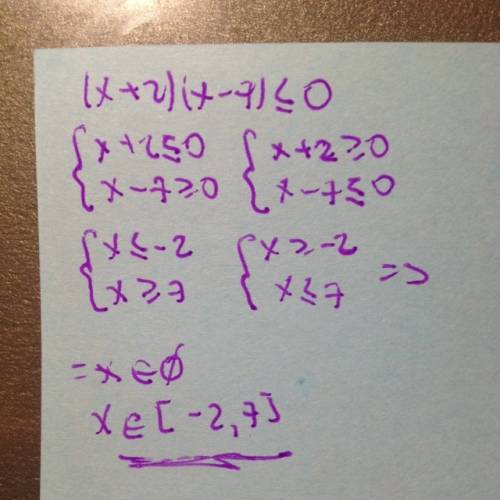 (x+2)(x-7)≤0
{x+2≤0 {x+2≥0
{x-7≥0 {x-7≤0
{x≤-2 {x≥-2
{x≥7 {x≤7 =>
=x∈∅
x∈[-2,7]